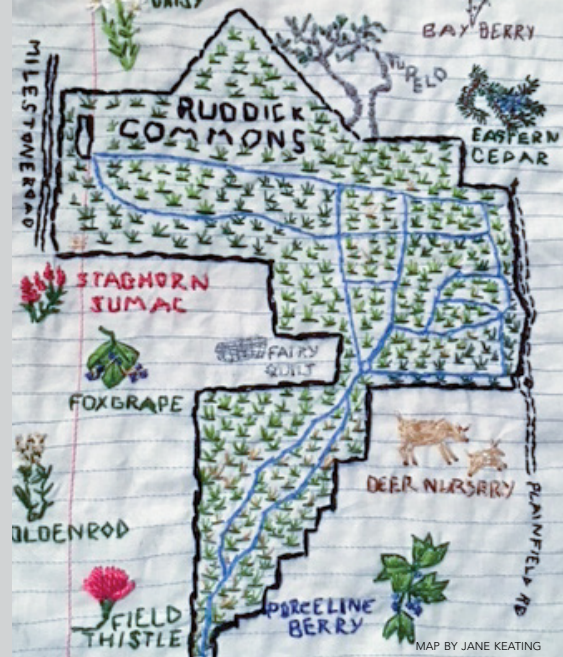 DAISY
BAYBERRY
MILESTONE ROAD
TUPELO
RUDDICK
COMMONS
EASTERN
CEDAR
STAGHORN
SUMAC
FAIRY
QUILT
FOXGRAPE
DEER NURSERY
OLDENROD
PLAINFIELD RD
FIELD
THISTLE
PORCELINE
BERRY
MAP BY JANE KEATING